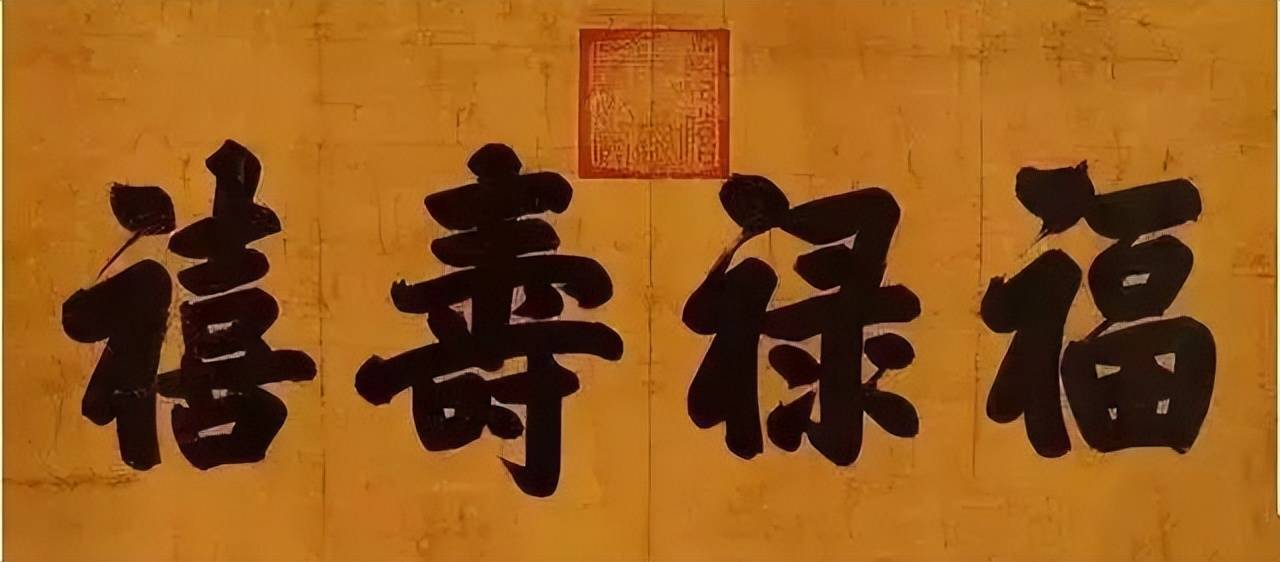 福禄壽禧